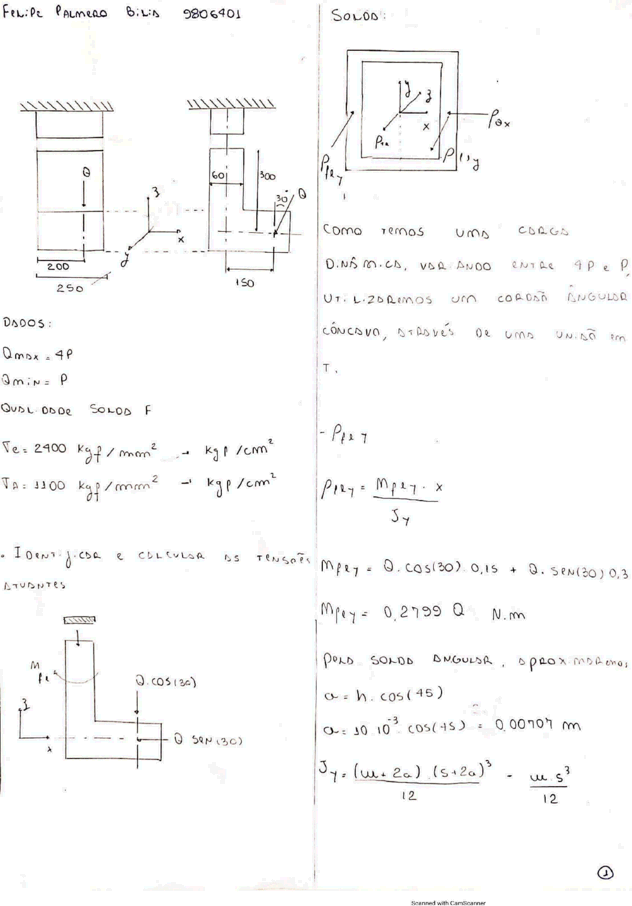 FELIPE PALMERO BILIA 9806401
Q
200
250
z
x
y
60
300
30°
Q
150
DADOS:
Qmax = 4P
Qmin = P
QUALIDADE SOLDA F
σe = 2400 kgf/mm² → kgf/cm²
σA = 1100 kgf/mm² → kgf/cm²
• IDENTIFICAR E CALCULAR AS TENSÕES
ATUANTES
Q.COS(30)
z
x
Q SEN(30)
SOLDA:
y
z
x
COMO TEMOS UMA CARGA
DINÂMICA, VARIANDO ENTRE 4P e P,
UTILIZAREMOS UM CORDÃO ANGULAR
CÔNCAVO, ATRAVÉS DE UMA UNIÃO em
T.
Jy
Q.COS(30).0,15 + Q.SEN(30)0,3
0,2799 Q N.m
PARA SOLDA ANGULAR, APROXIMAREMOS
a = h.cos(45)
a = 10.10⁻³ cos(45) = 0,00707 m
Jy = (w+2a).(s+2a)³/12 - w.s³/12
1
Scanned with CamScanner